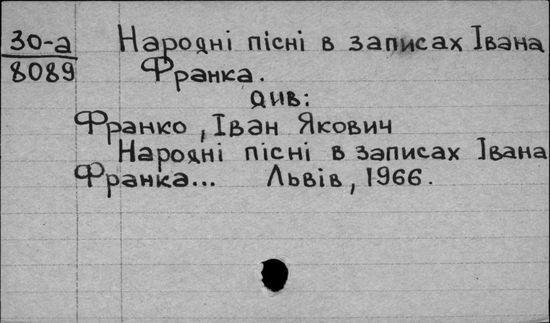 30-а Народні пісні в записах Івана
8089 Франка.
див:
Франко, Іван Якович
Народні пісні в записах Івана
Франка... Львів, 1966.